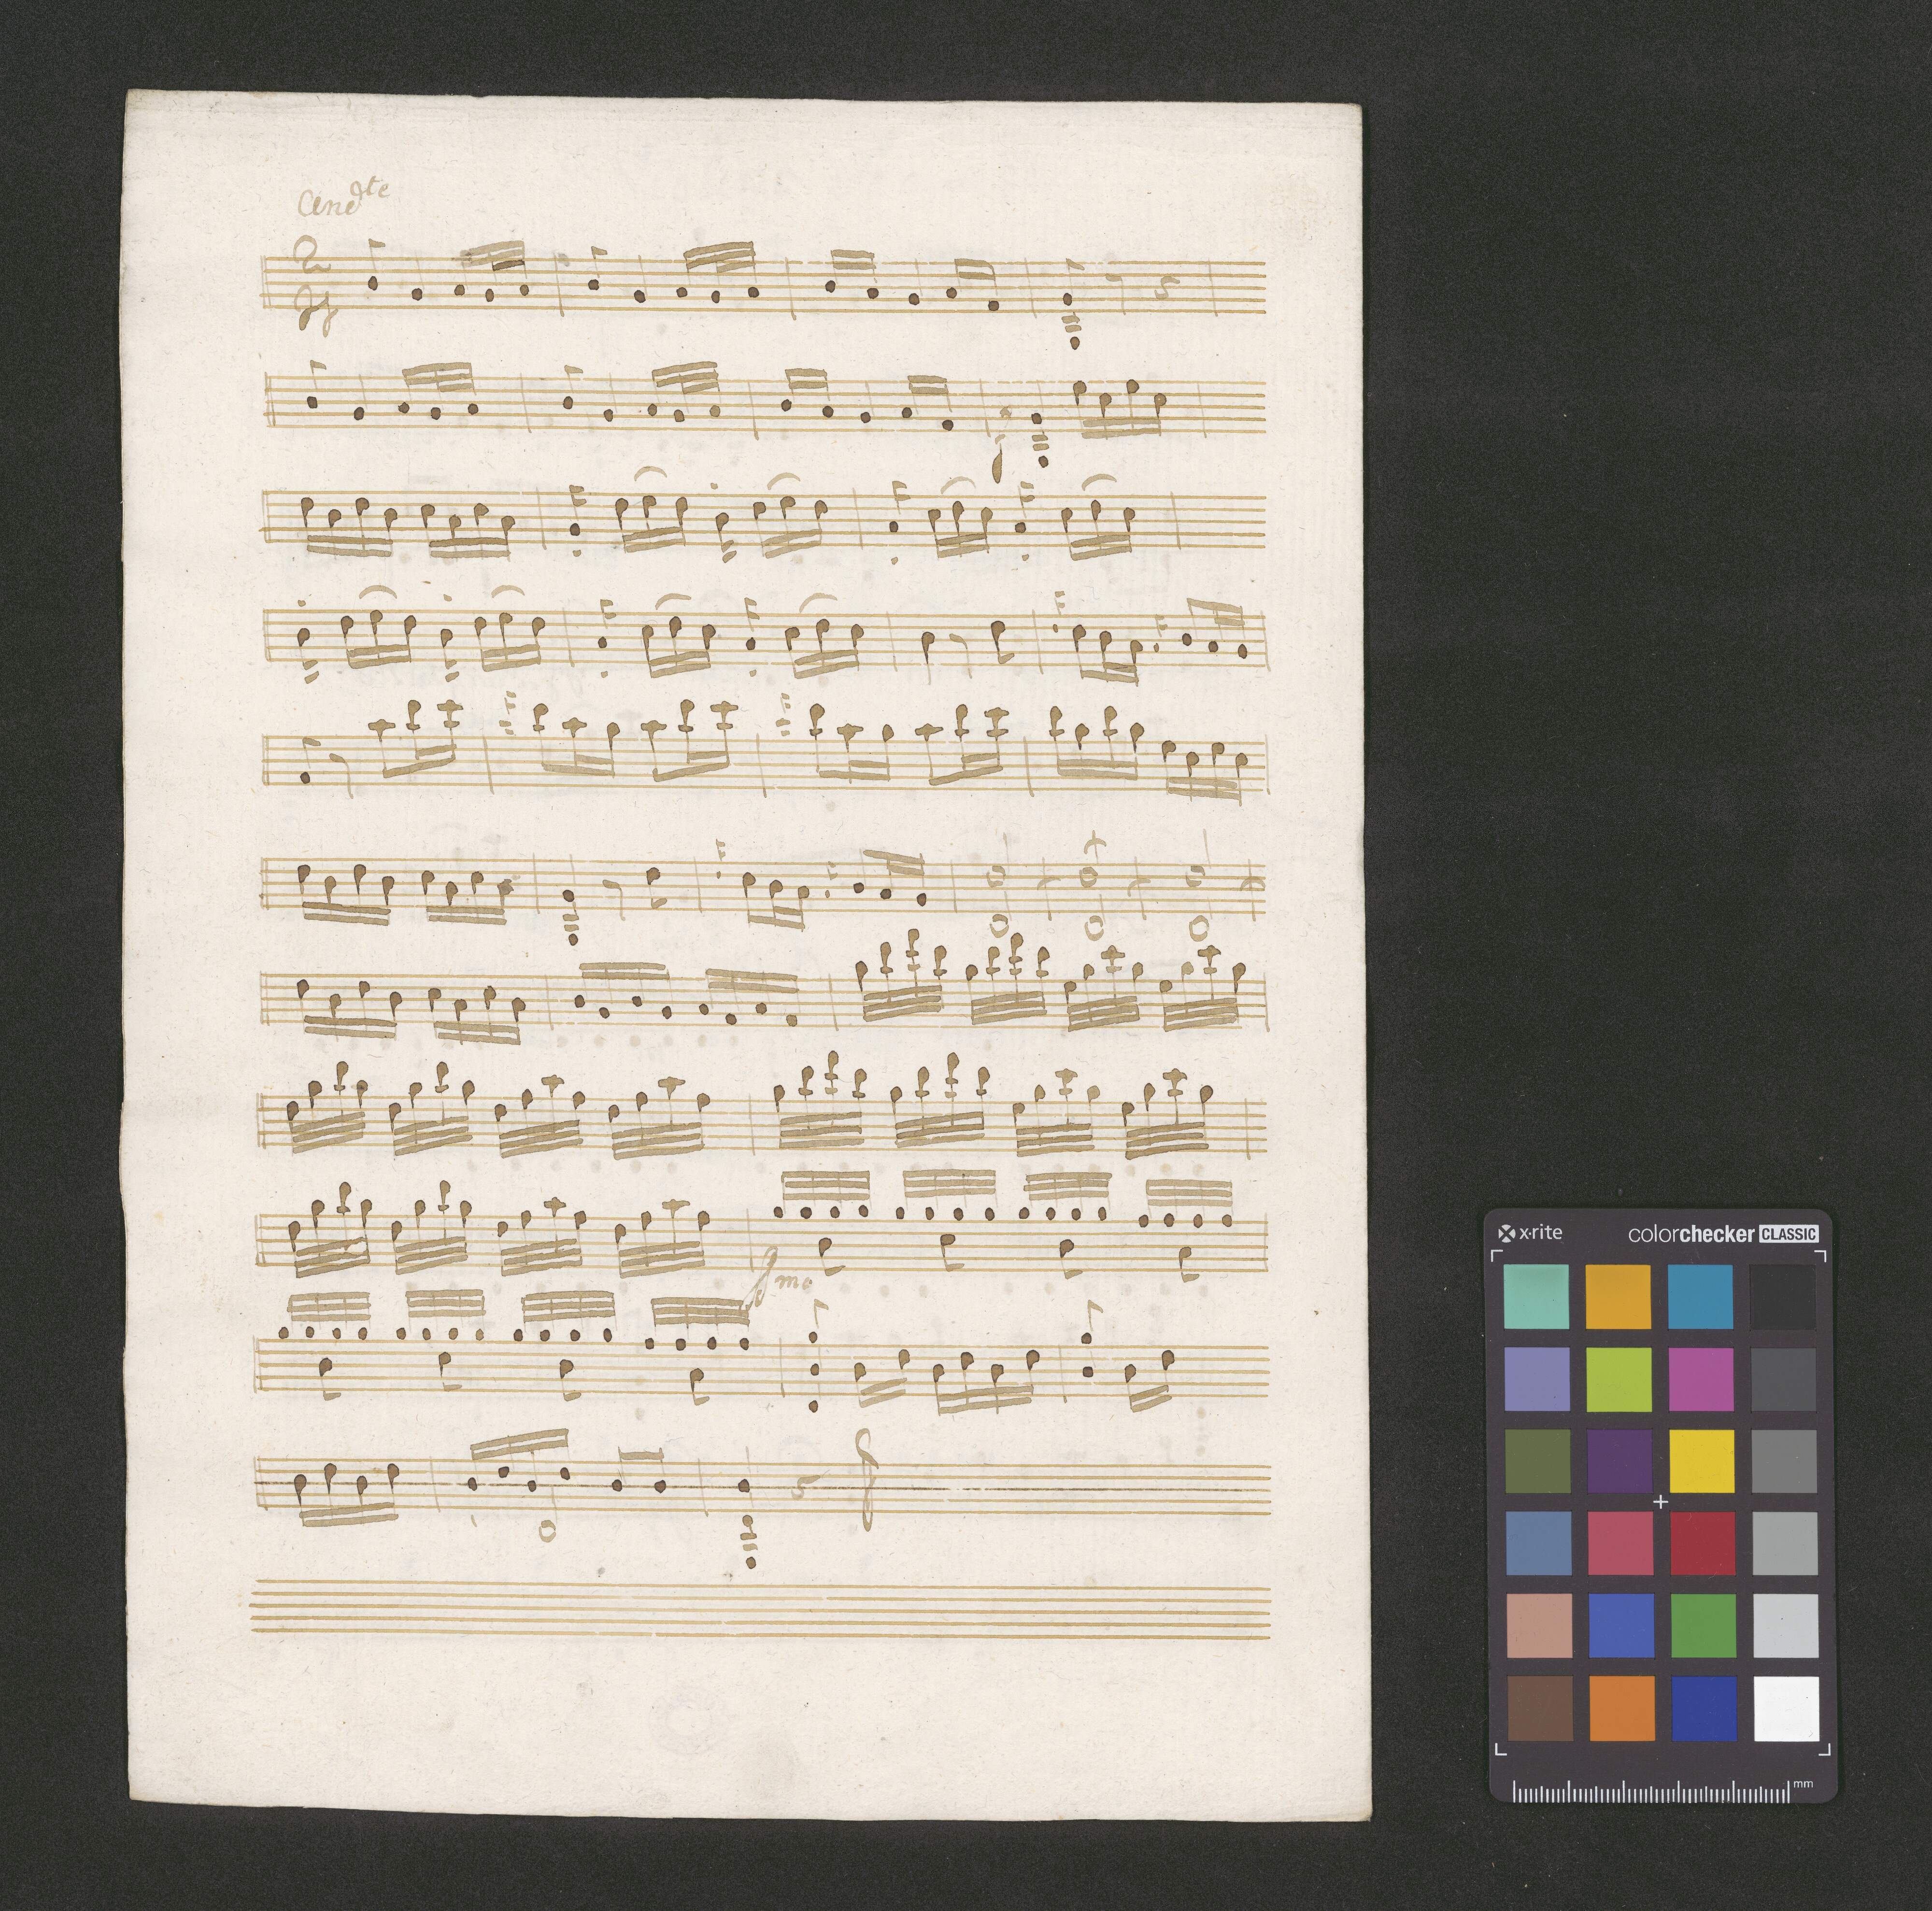 And.te
2
4
x-rite
colorchecker CLASSIC
mm